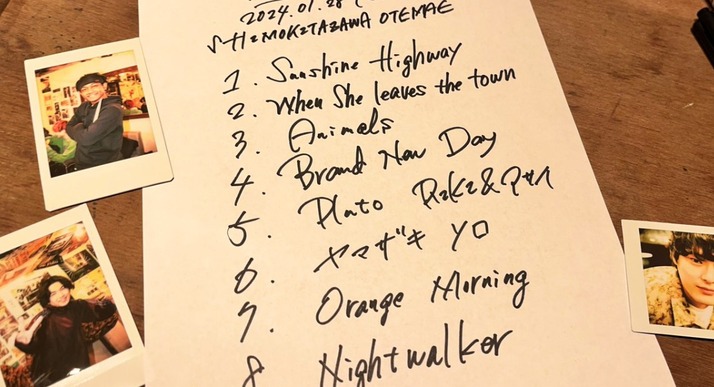 2024.01.28 (
SHIMOKITAZAWA OTEMAE
1. Sunshine Highway
2. When She leaves the town
3. Animals
4. Brand New Day
5. Plato
6. ヤマザキ YO
7. Orange Morning
8 Nightwalker